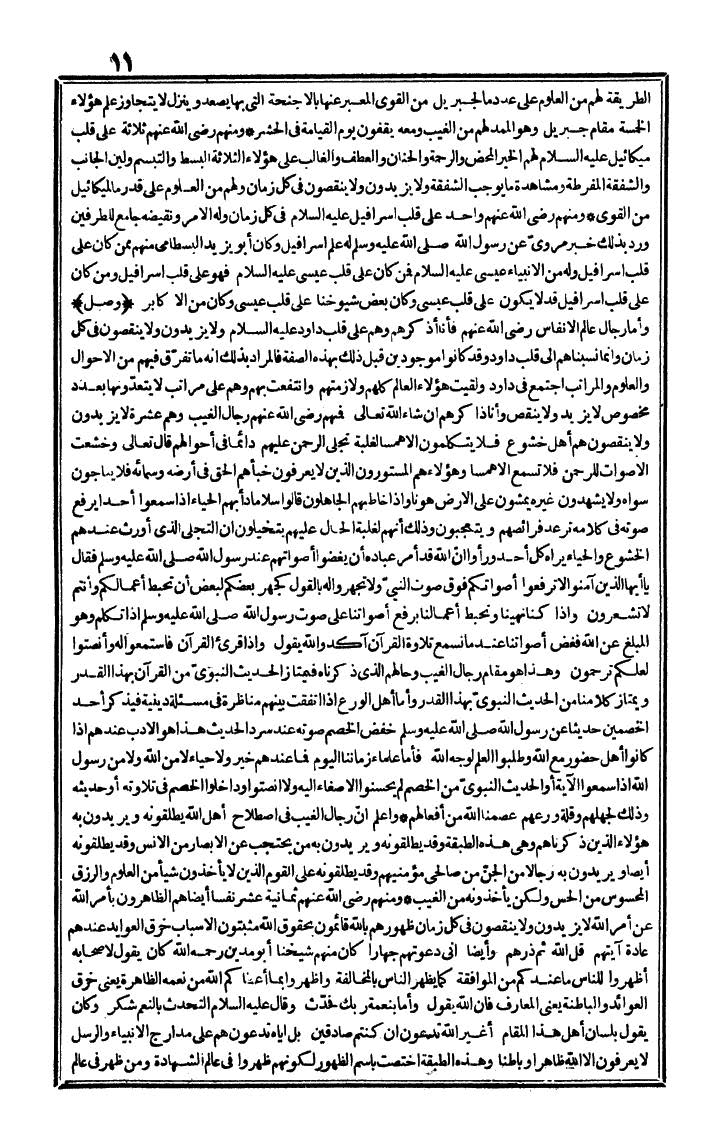 ١١
الطريقة لهم من العلوم على عدد ما لجبريل من القوى المعبر عنها بالاجنحة التى بها يصعد وينزل لا يتجاوز علم هؤلاء
الخمسة مقام جبريل وهو الممد لهم من الغيب ومعه يقفون يوم القيامة فى الحشر * ومنهم رضى الله عنهم ثلاثة على قلب
ميكائيل عليه السلام لهم الخير المحض والرحمة والحنان والعطف والغالب على هؤلاء الثلاثة البسط والتبسم ولين الجانب
والشفقة المفرطة ومشاهدة ما يوجب الشفقة ولا يزيدون ولا ينقصون فى كل زمان ولهم من العلوم على قدر ما لميكائيل
من القوى * ومنهم رضى الله عنهم واحد على قلب اسرافيل عليه السلام فى كل زمان وله الامر ونقيضه جامع للطرفين
ورد بذلك خبر مروىّ عن رسول الله صلى الله عليه وسلم له علم اسرافيل وكان أبو يزيد البسطامى منهم ممن كان على
قلب اسرافيل وله من الانبياء عيسى عليه السلام فمن كان على قلب عيسى عليه السلام فهو على قلب اسرافيل ومن كان
على قلب اسرافيل قد لا يكون على قلب عيسى وكان بعض شيوخنا على قلب عيسى وكان من الا كابر ﴿وصل﴾
وأما رجال عالم الانفاس رضى الله عنهم فأنا أذكرهم وهم على قلب داود عليه السلام ولا يزيدون ولا ينقصون فى كل
زمان وانما نسبناهم الى قلب داود وقد كانوا موجودين قبل ذلك بهذه الصفة فالمراد بذلك انه ما تفرّق فيهم من الاحوال
والعلوم والمراتب اجتمع فى داود ولقيت هؤلاء العالم كلهم ولازمتهم وانتفعت بهم وهم على مراتب لا يتعدّونها بعدد
مخصوص لا يزيد ولا ينقص وأنا ذاكرهم ان شاء الله تعالى فمنهم رضى الله عنهم رجال الغيب وهم عشرة لا يزيدون
ولا ينقصون هم أهل خشوع فلا يتكلمون الا همسا لغلبة تجلى الرحمن عليهم دائما فى أحوالهم قال تعالى وخشعت
الاصوات للرحمن فلا تسمع الا همسا وهؤلاء هم المستورون الذين لا يعرفون خبأهم الحق فى أرضه وسمائه فلا يناجون
سواه ولا يشهدون غيره يمشون على الارض هونا واذا خاطبهم الجاهلون قالوا سلاما دأبهم الحياء اذا سمعوا أحدا يرفع
صوته فى كلامه ترعد فرائصهم ويتعجبون وذلك أنهم لغلبة الحال عليهم يتخيلون ان التجلى الذى أورث عندهم
الخشوع والحياء يراه كل أحد ورأوا انّ الله قد أمر عباده أن يغضوا أصواتهم عند رسول الله صلى الله عليه وسلم فقال
ياأيها الذين آمنوا لا ترفعوا أصواتكم فوق صوت النبىّ ولا تجهروا له بالقول كجهر بعضكم لبعض أن تحبط أعمالكم وأنتم
لا تشعرون واذا كنا نهينا وتحبط أعمالنا برفع أصواتنا على صوت رسول الله صلى الله عليه وسلم اذا تكلم وهو
المبلغ عن الله فغض أصواتنا عند ما نسمع تلاوة القرآن آكد والله يقول واذا قرئ القرآن فاستمعوا له وأنصتوا
لعلكم ترحمون وهذا هو مقام رجال الغيب وحالهم الذى ذكرناه فيمتاز الحديث النبوىّ من القرآن بهذا القدر
ويمتاز كلامنا من الحديث النبوىّ بهذا القدر وأما أهل الورع اذا اتفقت بينهم مناظرة فى مسئلة دينية فيذكر أحد
الخصمين حديثا عن رسول الله صلى الله عليه وسلم خفض الخصم صوته عند سرد الحديث هذا هو الادب عندهم اذا
كانوا أهل حضور مع الله وطلبوا العلم لوجه الله فأما علماء زماننا اليوم فما عندهم خير ولا حياء لا من الله ولا من رسول
الله اذا سمعوا الآية أو الحديث النبوىّ من الخصم لم يحسنوا الاصغاء اليه ولا انصتوا وداخلوا الخصم فى تلاوته أو حديثه
وذلك لجهلهم وقلة ورعهم عصمنا الله من أفعالهم * واعلم انّ رجال الغيب فى اصطلاح أهل الله يطلقونه ويريدون به
هؤلاء الذين ذكرناهم وهى هذه الطبقة وقد يطلقونه ويريدون به من يحتجب عن الابصار من الانس وقد يطلقونه
أيضا ويريدون به رجالا من الجنّ من صالحى مؤمنيهم وقد يطلقونه على القوم الذين لا يأخذون شيأ من العلوم والرزق
المحسوس من الحس ولكن يأخذونه من الغيب * ومنهم رضى الله عنهم ثمانية عشر نفسا أيضا هم الظاهرون بأمر الله
عن أمر الله لا يزيدون ولا ينقصون فى كل زمان ظهورهم بالله قائمون بحقوق الله مثبتون الاسباب خرق العوايد عندهم
عادة آيتهم قل الله ثم ذرهم وأيضا انى دعوتهم جهارا كان منهم شيخنا أبو مدين رحمه الله كان يقول لاصحابه
أظهروا للناس ما عندكم من الموافقة كما يظهر الناس بالمخالفة واظهروا بما أعطاكم الله من نعمه الظاهرة يعنى خرق
العوائد والباطنة يعنى المعارف فان الله يقول وأما بنعمة ربك فحدّث وقال عليه السلام التحدث بالنعم شكر وكان
يقول بلسان أهل هذا المقام أغير الله تدعون ان كنتم صادقين بل اياه تدعون هم على مدارج الانبياء والرسل
لا يعرفون الا الله ظاهرا وباطنا وهذه الطبقة اختصت باسم الظهور لكونهم ظهروا فى عالم الشهادة ومن ظهر فى عالم